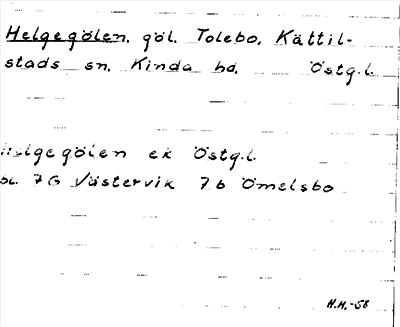 Helgegölen, göl. Tolebo, Kättil-
stads sn. Kinda hd. Östg.l.
Helgegölen ek Östg.l.
bl. 7G Västervik 7b Ömelsbo
H.H.-58